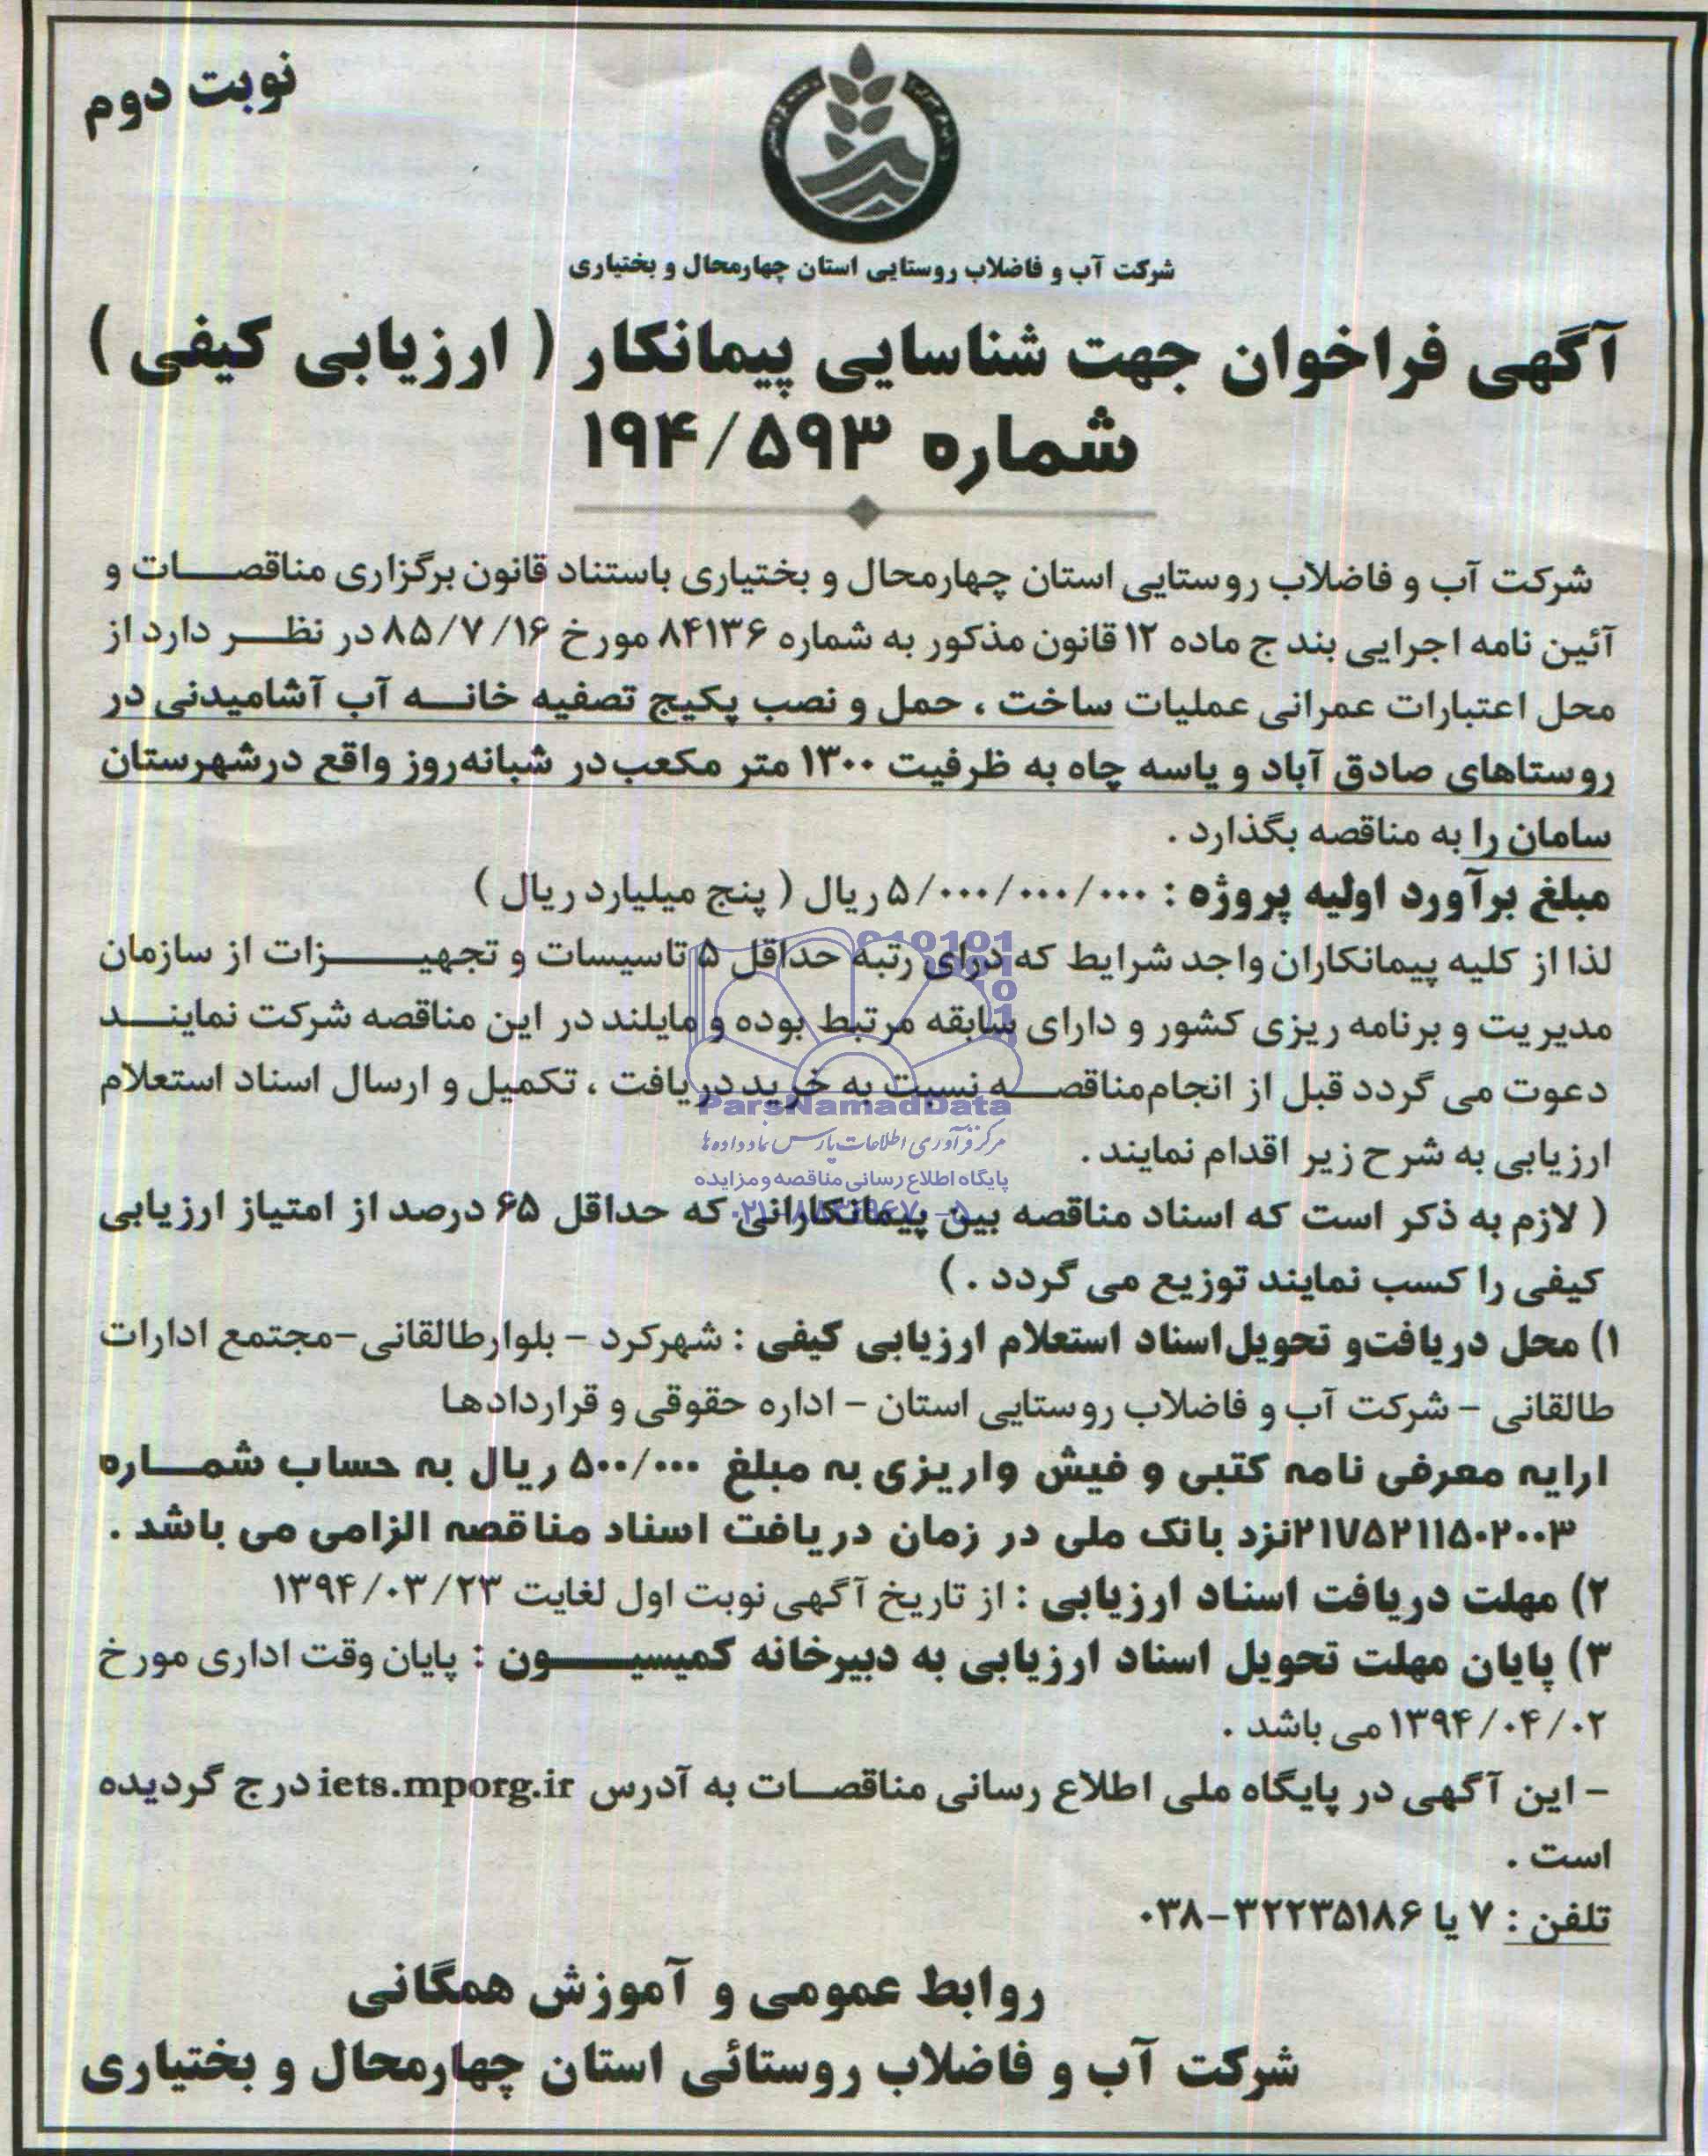 نوبت دوم
شرکت آب و فاضلاب روستایی استان چهارمحال و بختیاری
آگهی فراخوان جهت شناسایی پیمانکار ( ارزیابی کیفی )
شماره ۱۹۴/۵۹۳
شرکت آب و فاضلاب روستایی استان چهارمحال و بختیاری باستناد قانون برگزاری مناقصات و
آئین نامه اجرایی بند ج ماده ۱۲ قانون مذکور به شماره ۸۴۱۳۶ مورخ ۸۵/۷/۱۶ در نظر دارد از
محل اعتبارات عمرانی عملیات ساخت ، حمل و نصب پکیج تصفیه خانه آب آشامیدنی در
روستاهای صادق آباد و یاسه چاه به ظرفیت ۱۳۰۰ متر مکعب در شبانه‌روز واقع درشهرستان
سامان را به مناقصه بگذارد .
مبلغ برآورد اولیه پروژه : ۵/۰۰۰/۰۰۰/۰۰۰ ریال ( پنج میلیارد ریال )
لذا از کلیه پیمانکاران واجد شرایط که درای رتبه حداقل ۵ تاسیسات و تجهیزات از سازمان
مدیریت و برنامه ریزی کشور و دارای سابقه مرتبط بوده و مایلند در این مناقصه شرکت نمایند
دعوت می گردد قبل از انجام مناقصه نسبت به خرید دریافت ، تکمیل و ارسال اسناد استعلام
ارزیابی به شرح زیر اقدام نمایند .
( لازم به ذکر است که اسناد مناقصه بین پیمانکارانی که حداقل ۶۵ درصد از امتیاز ارزیابی
کیفی را کسب نمایند توزیع می گردد . )
۱) محل دریافت و تحویل اسناد استعلام ارزیابی کیفی : شهرکرد - بلوارطالقانی-مجتمع ادارات
طالقانی - شرکت آب و فاضلاب روستایی استان - اداره حقوقی و قراردادها
ارایه معرفی نامه کتبی و فیش واریزی به مبلغ ۵۰۰/۰۰۰ ریال به حساب شماره
۲۱۷۵۲۱۱۵۰۲۰۰۳ نزد بانک ملی در زمان دریافت اسناد مناقصه الزامی می باشد .
۲) مهلت دریافت اسناد ارزیابی : از تاریخ آگهی نوبت اول لغایت ۱۳۹۴/۰۳/۲۳
۳) پایان مهلت تحویل اسناد ارزیابی به دبیرخانه کمیسیون : پایان وقت اداری مورخ
۱۳۹۴/۰۴/۰۲ می باشد .
- این آگهی در پایگاه ملی اطلاع رسانی مناقصات به آدرس iets.mporg.ir درج گردیده
است .
تلفن : ۷ یا ۳۲۲۳۵۱۸۶-۰۳۸
روابط عمومی و آموزش همگانی
شرکت آب و فاضلاب روستائی استان چهارمحال و بختیاری
ParsNamadData
مرکز فرآوری اطلاعات پارس نماد داده ها
پایگاه اطلاع رسانی مناقصه و مزایده